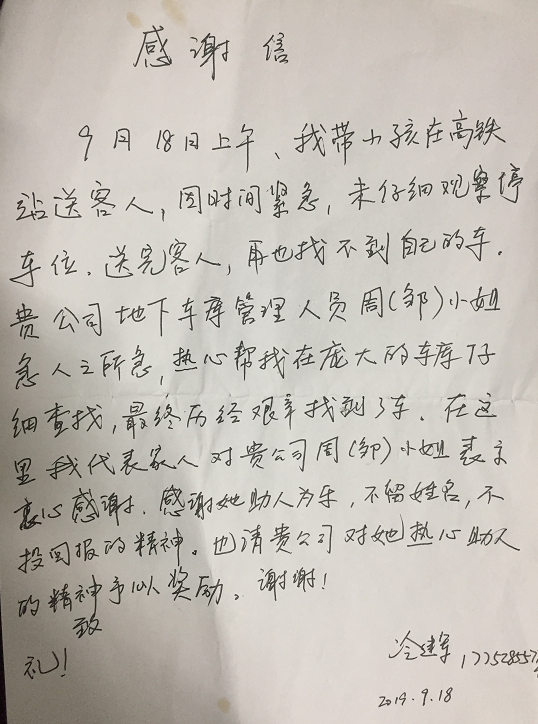 感谢信
9月18日上午、我带小孩在高铁
站送客人，因时间紧急，未仔细观察停
车位．送完客人，再也找不到自己的车．
贵公司地下车库管理人员周(邹)小姐
急人之所急，热心帮找在庞大的车库下仔
细查找，最终历经艰辛找到了车．在这
里我代表家人对贵公司周(邹)小姐表示
衷心感谢．感谢她助人为乐，不留姓名，不
投回报的精神。也请贵公司对她热心助人
的精神予以奖励。谢谢！
致
礼！
冷建军 177528557
2019.9.18